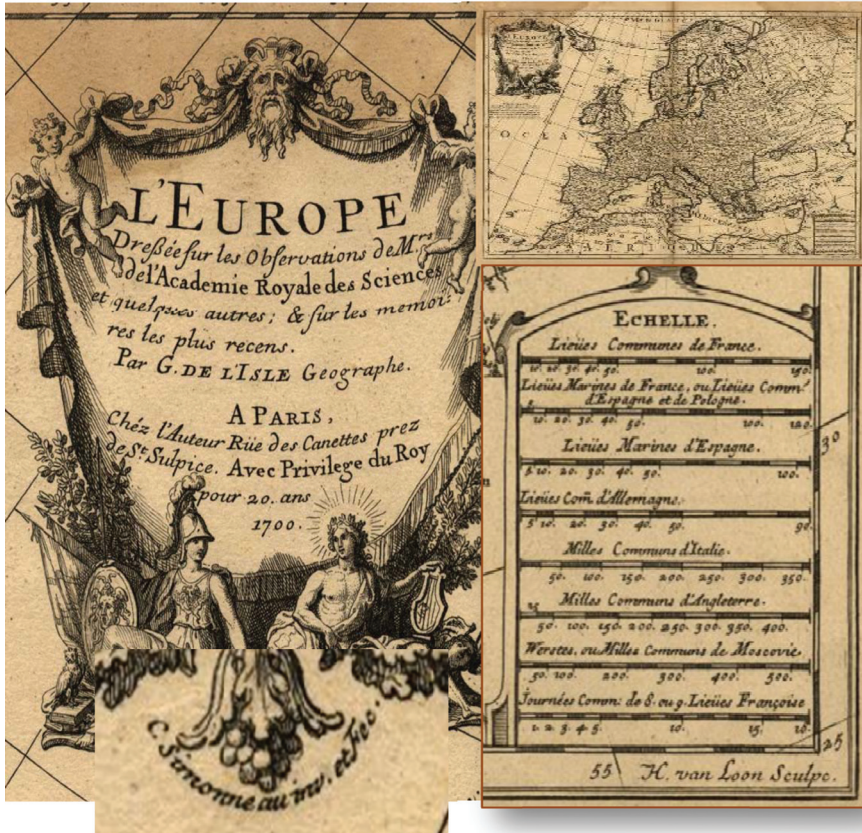 L'EUROPE
Dreßée sur les Observations de M.rs
de l'Academie Royale des Sciences
et quelques autres; & sur les memoi-
res les plus recens.
Par G. DE L'ISLE Geographe.
A PARIS,
Chéz l'Auteur Rüe des Canettes prez
de St. Sulpice. Avec Privilege du Roy
pour 20. ans
1700.
C. Simonneau inv. et Fec.
L'EUROPE
OCEAN
AFRIQUE
ECHELLE.
Lieües Communes de France.
10. 20. 30. 40. 50. 100. 150.
Lieües Marines de France, ou Lieües Comm.s
d'Espagne et de Pologne.
5 10. 20. 30. 40. 50. 100. 120.
Lieües Marines d'Espagne.
5 10. 20. 30. 40. 50. 100.
Lieües Com̃ d'Allemagne.
5 10. 20. 30. 40. 50. 90.
Milles Communs d'Italie.
50. 100. 150. 200. 250. 300. 350.
Milles Communs d'Angleterre.
25 50. 100. 150. 200. 250. 300. 350. 400.
Werstes, ou Milles Communs de Moscovie
50. 100. 200. 300. 400. 500.
Journées Comm: de 8. ou 9. Lieües Françoise
1. 2. 3. 4. 5. 10. 15.
30
25
55 H. van Loon Sculpc.